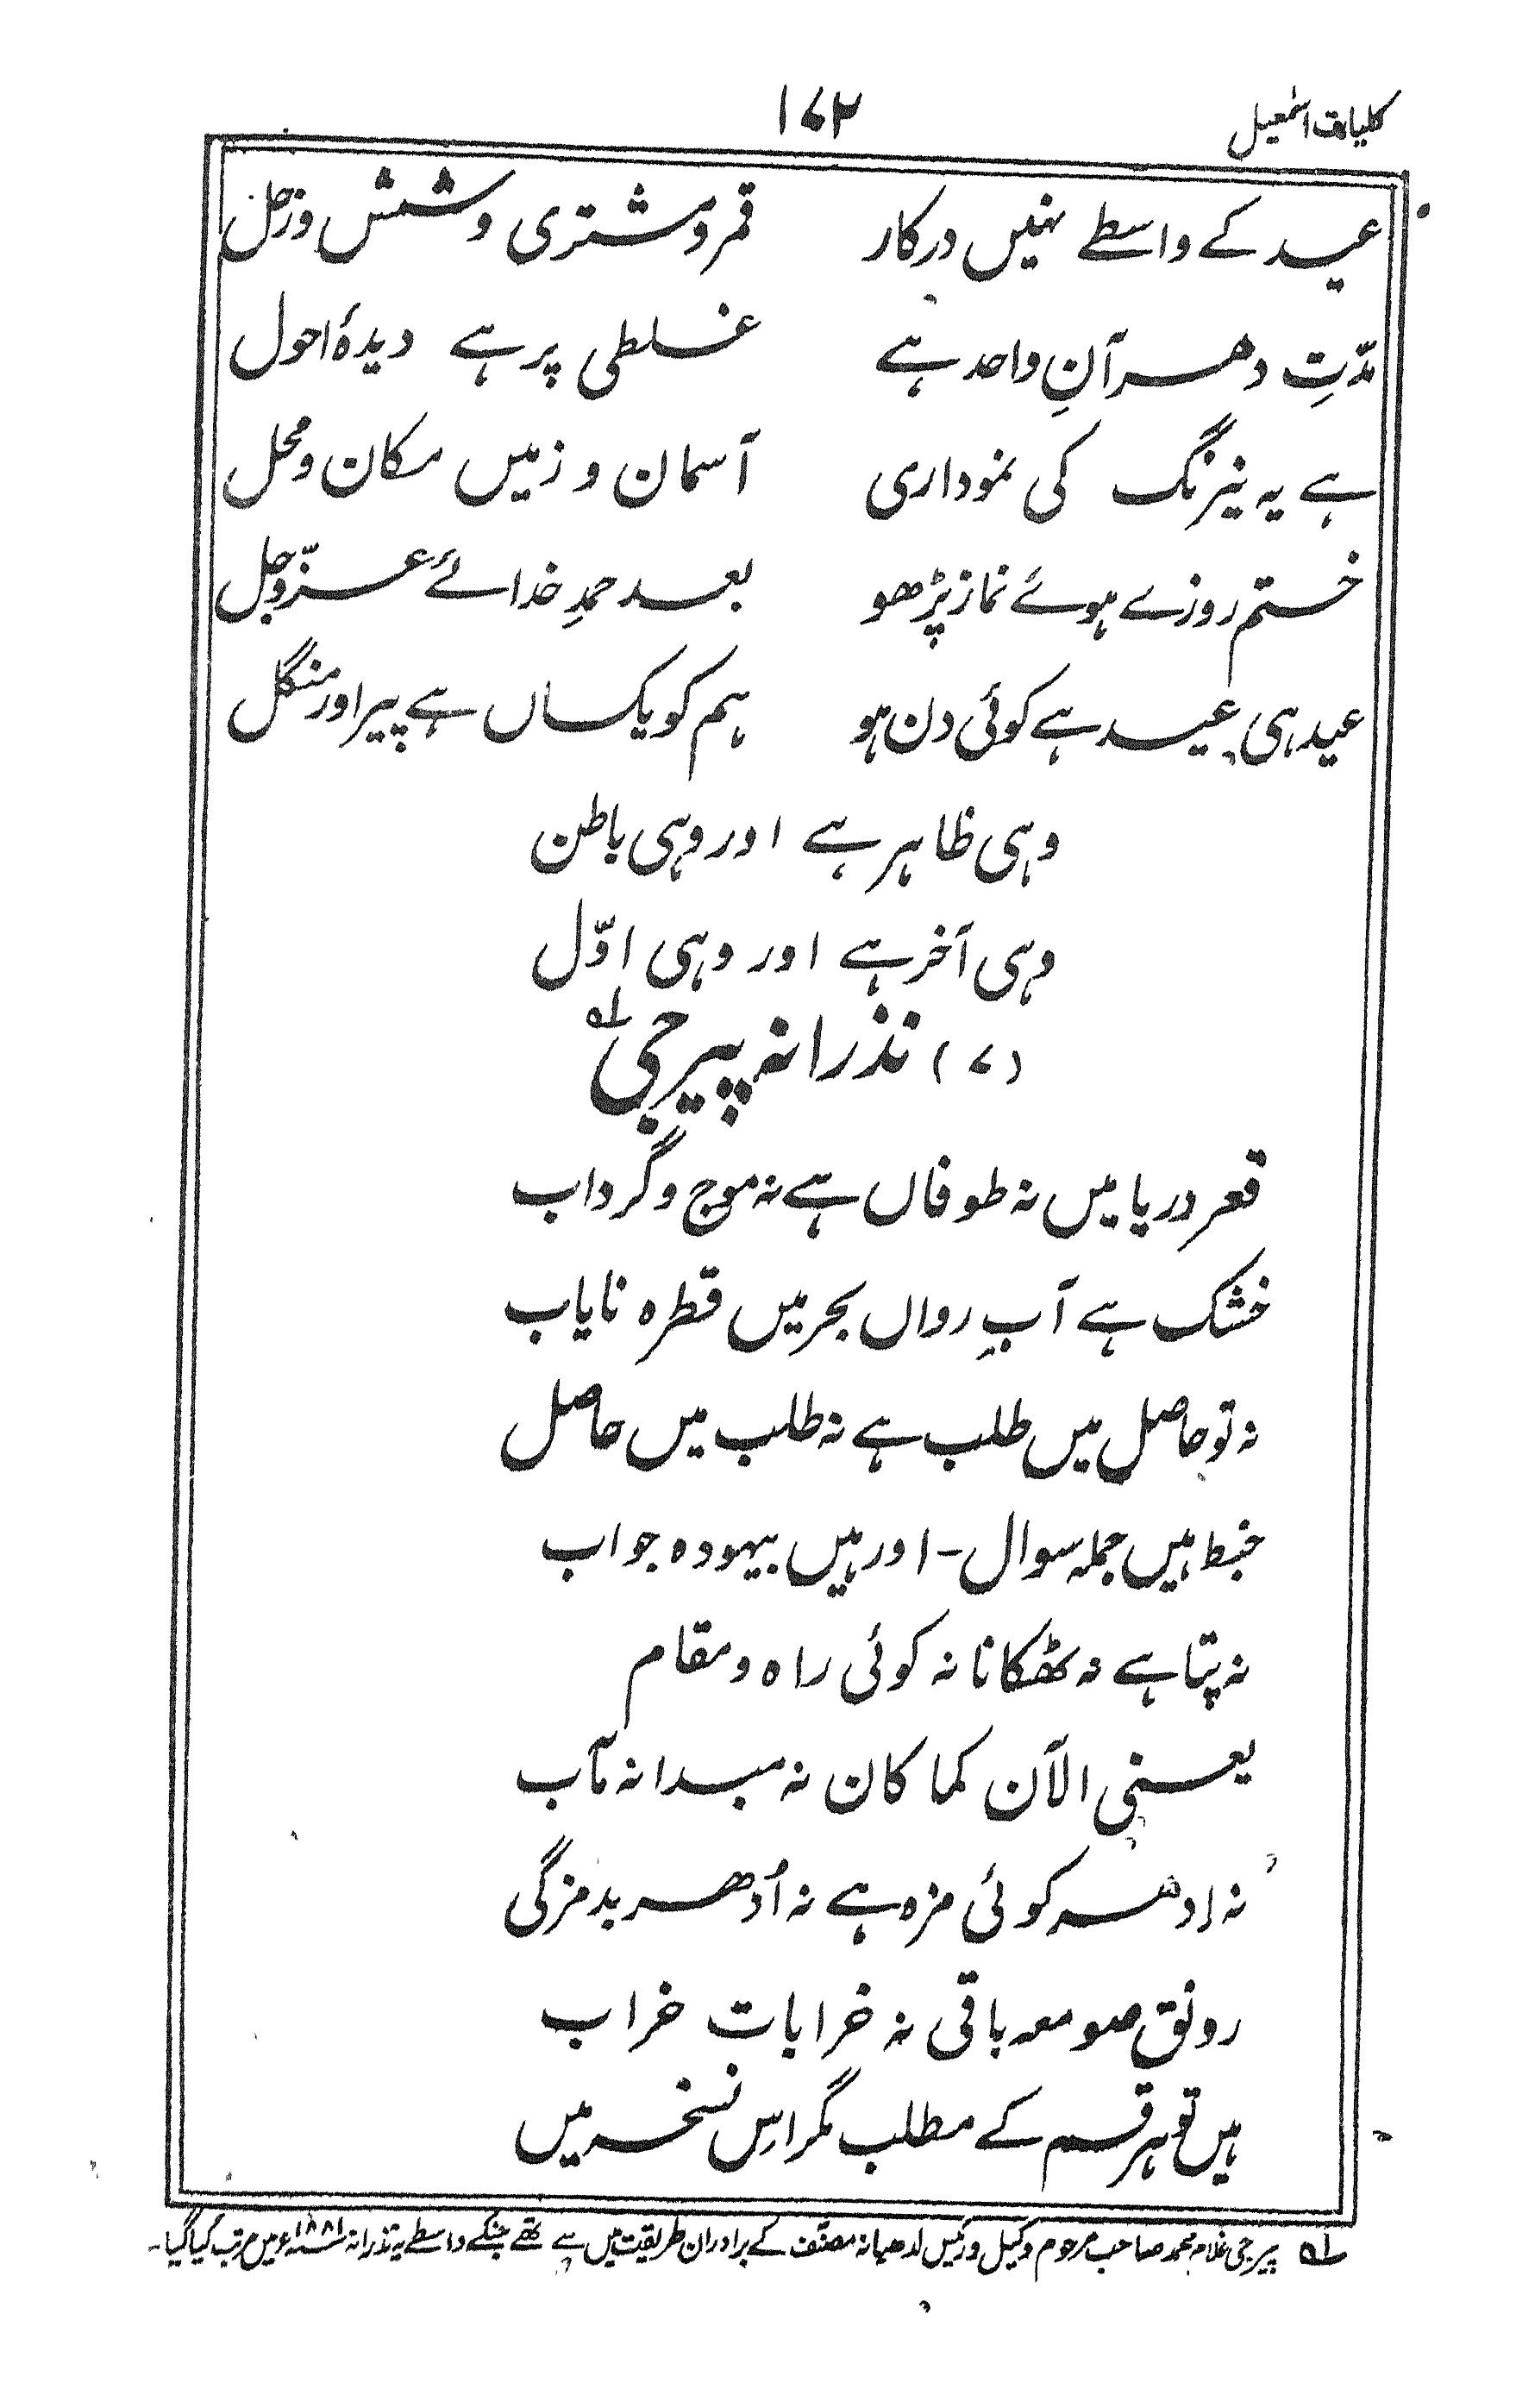 کلیات اسمٰعیل
۱۷۲
عید کے واسطے نہیں درکار قمر و مشتری و شمس و زحل
مدّتِ دھر آنِ واحد ہے غلطی پر ہے دیدۂ احول
ہے یہ نیرنگ کی نموداری آسمان و زمیں مکان و محل
ختم روزے ہوئے نماز پڑھو بعد حمدِ خدائے عزّوجل
عید ہی عید ہے کوئی دن ہو ہم کو یکساں ہے پیر اور منگل
وہی ظاہر ہے اور وہی باطن
وہی آخر ہے اور وہی اوّل
(۷) نذرانہ پیرجی ؎۱
قعر دریا میں نہ طوفاں ہے نہ موج و گرداب
خشک ہے آبِ رواں بحر میں قطرہ نایاب
نہ تو حاصل میں طلب ہے نہ طلب میں حاصل
خبط ہیں جملہ سوال - اور ہیں بیہودہ جواب
نہ پتا ہے نہ ٹھکانا نہ کوئی راہ و مقام
یعنی الآن کما کان نہ مبدا نہ مآب
نہ اِدھر کوئی مزہ ہے نہ اُدھر بدمزگی
رونق صومعہ باقی نہ خرابات خراب
ہیں تو ہر قسم کے مطلب مگر اِس نسخہ میں
؎۱ پیرجی غلام محمد صاحب مرحوم وکیل و رئیس لدھیانہ مصنّف کے برادران طریقت میں سے تھے جنکے واسطے یہ نذرانہ ۱۸۸۱ء میں مرتب کیا گیا۔